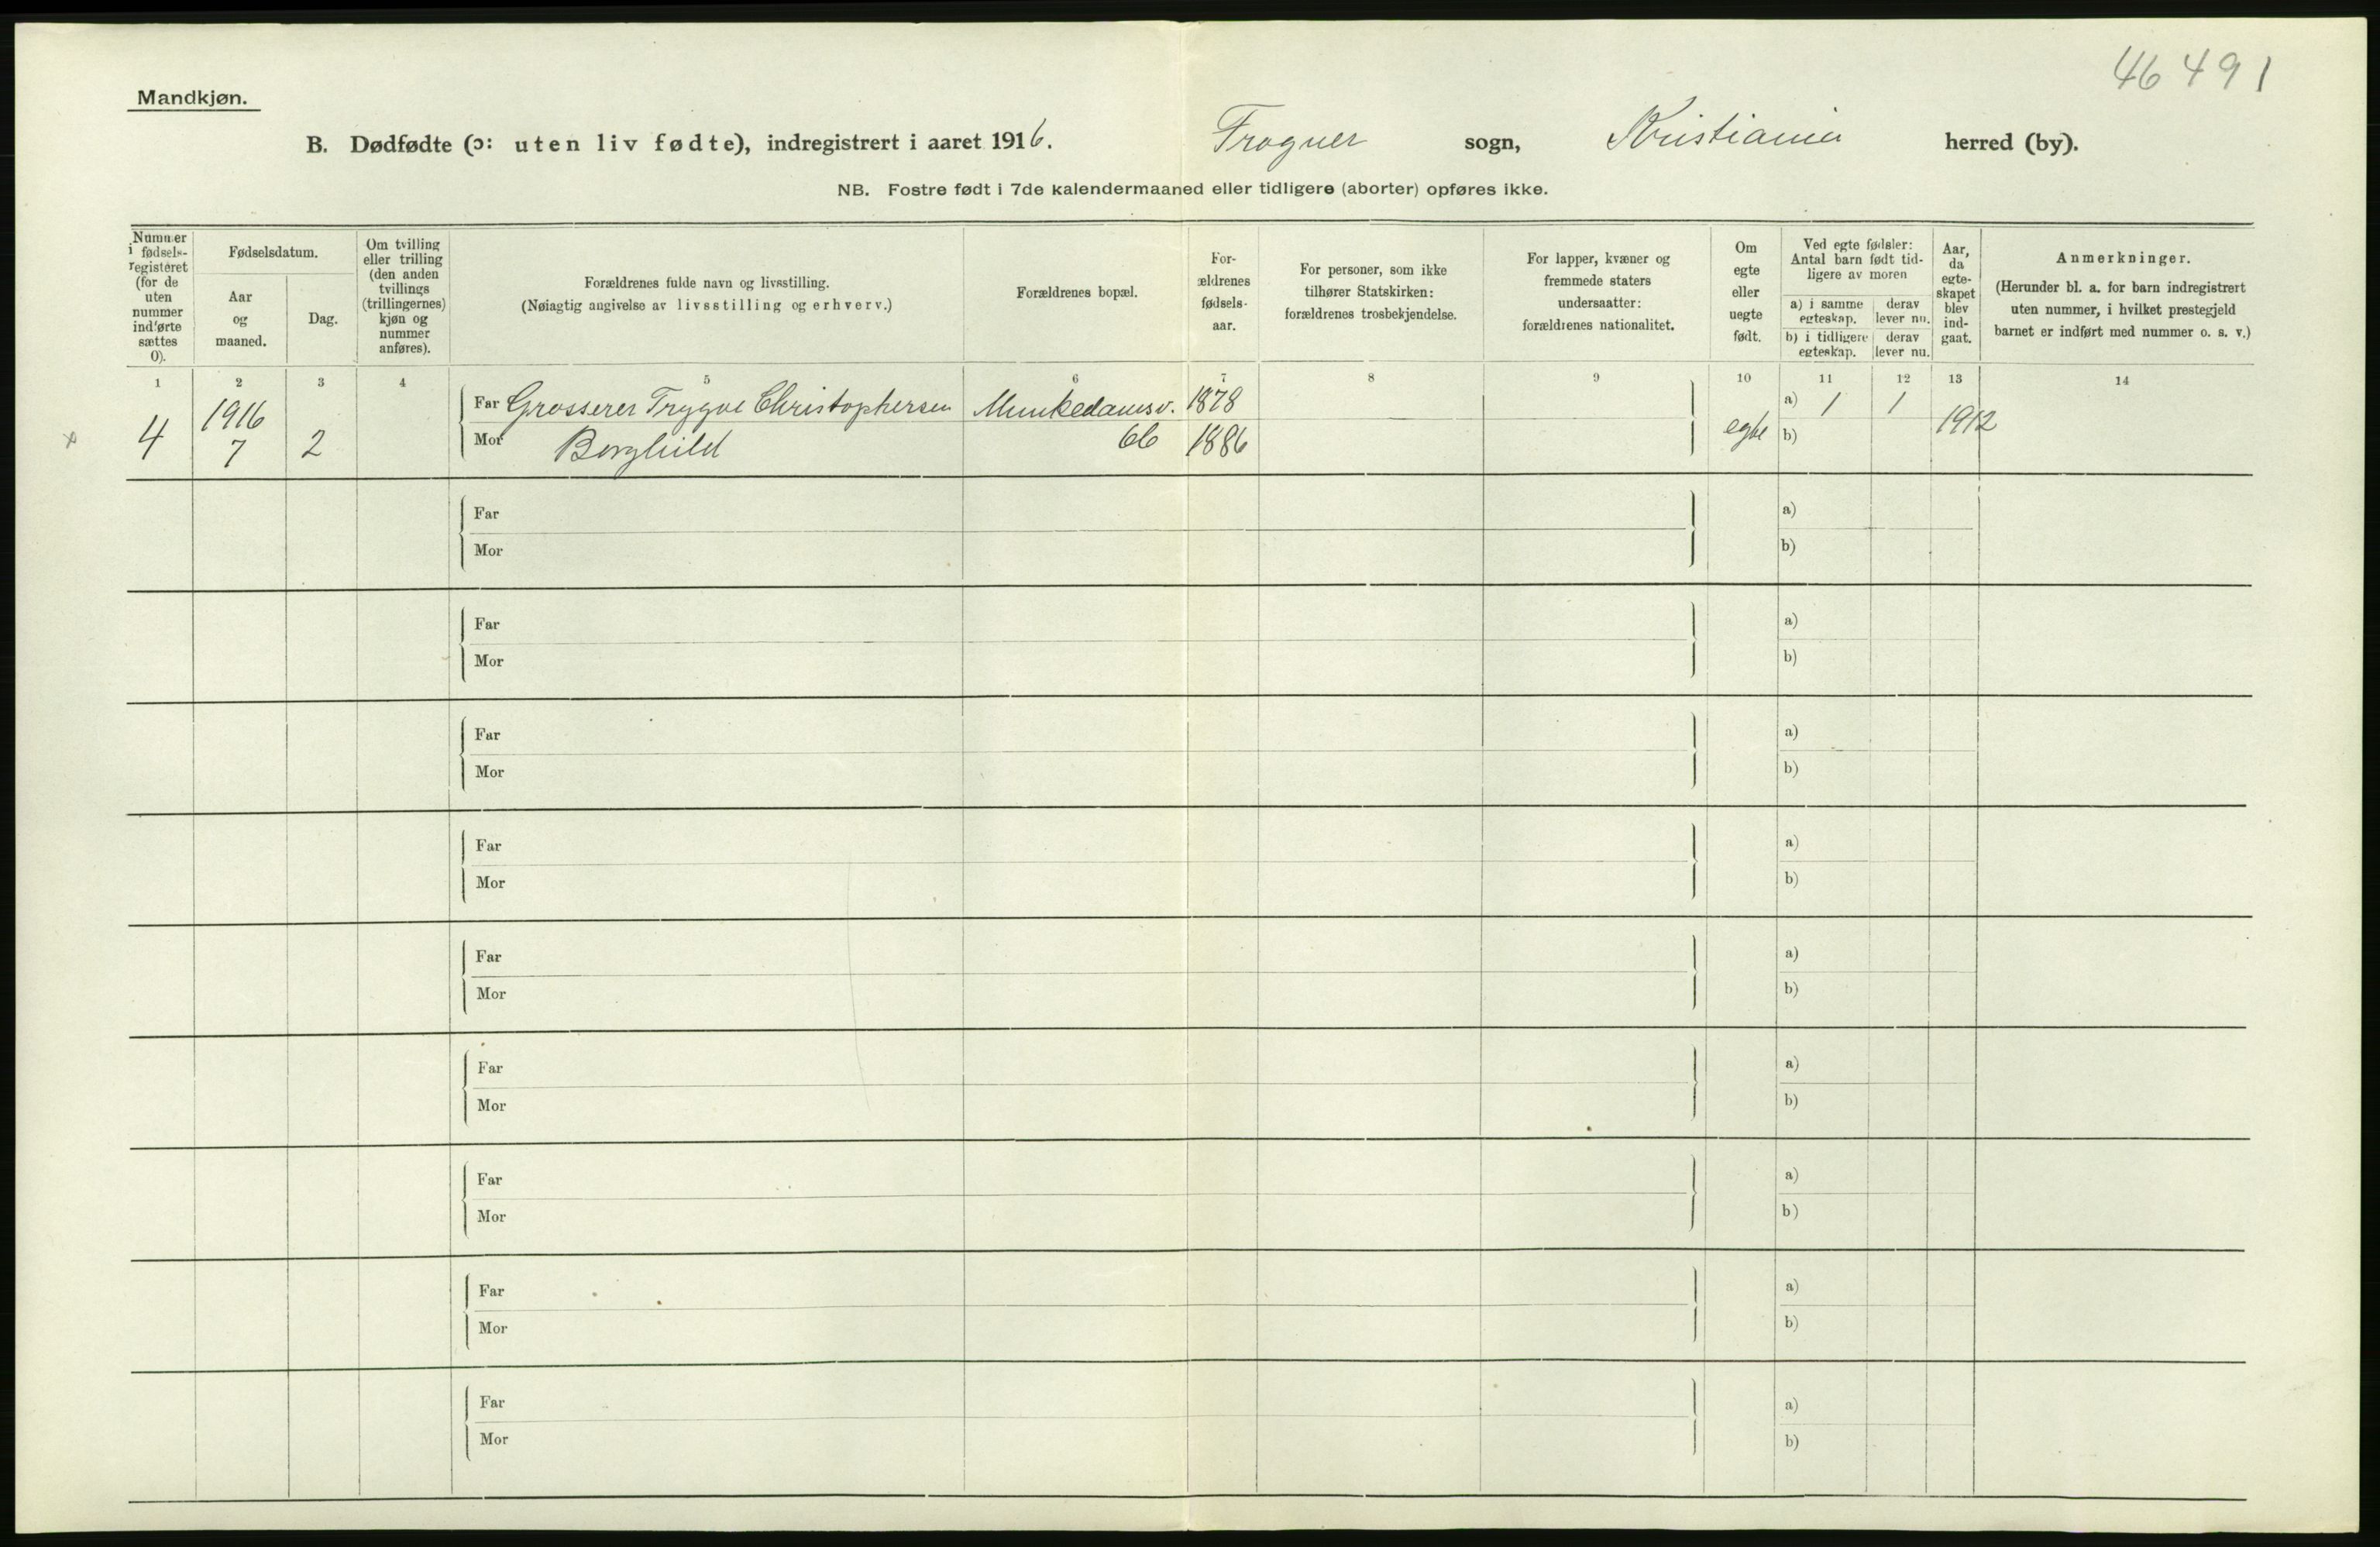 46 491
Mandkjøn.
B. Dødfødte (ɔ: uten liv fødte), indregistrert i aaret 1916. Frogner sogn, Kristiania herred (by).
NB. Fostre født i 7de kalendermaaned eller tidligere (aborter) opføres ikke.
Nummer
i fødsels-
registeret
(for de
uten
nummer
indførte
sættes
0).
Fødselsdatum.
Aar
og
maaned.
Dag.
Om tvilling
eller trilling
(den anden
tvillings
(trillingernes)
kjøn og
nummer
anføres).
Forældrenes fulde navn og livsstilling.
(Nøiagtig angivelse av livsstilling og erhverv.)
Forældrenes bopæl.
For-
ældrenes
fødsels-
aar.
For personer, som ikke
tilhører Statskirken:
forældrenes trosbekjendelse.
For lapper, kvæner og
fremmede staters
undersaatter:
forældrenes nationalitet.
Om
egte
eller
uegte
født.
Ved egte fødsler:
Antal barn født tid-
ligere av moren
a) i samme
egteskap.
derav
lever nu.
b) i tidligere
egteskap.
derav
lever nu.
Aar,
da
egte-
skapet
blev
ind-
gaat.
Anmerkninger.
(Herunder bl. a. for barn indregistrert
uten nummer, i hvilket prestegjeld
barnet er indført med nummer o. s. v.)
1 2 3 4 5 6 7 8 9 10 11 12 13 14
1916 Far Grosserer Trygve Christophersen Munkedamsv. 1878 a) 1 1
x 4 7 2 Mor Borghild 66 1886 egte b) 1912
Far a)
Mor b)
Far a)
Mor b)
Far a)
Mor b)
Far a)
Mor b)
Far a)
Mor b)
Far a)
Mor b)
Far a)
Mor b)
Far a)
Mor b)
Far a)
Mor b)